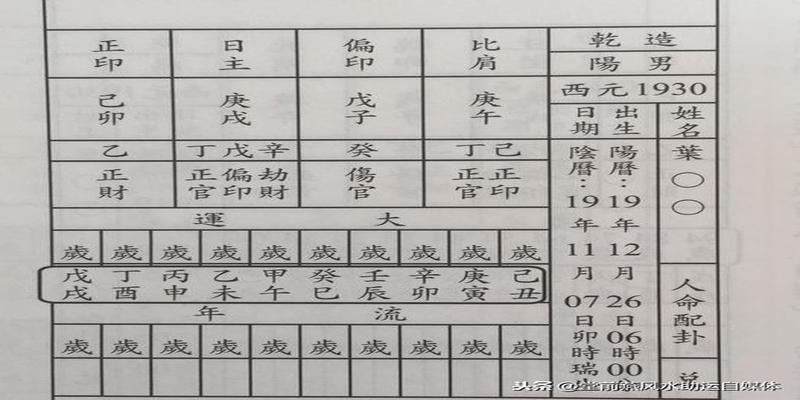 乾造
陽男
西元1930
姓名
葉○○
人命配卦
出生日期
陽曆:1912年12月26日06時00
陰曆:1911年11月07日卯時瑞
比肩 偏印 日主 正印
庚午 戊子 庚戌 己卯
丁己 癸 丁戊辛 乙
正官 正印 傷官 正官 偏印 劫財 正財
大運
歲 歲 歲 歲 歲 歲 歲 歲 歲 歲
己丑 庚寅 辛卯 壬辰 癸巳 甲午 乙未 丙申 丁酉 戊戌
流年
歲 歲 歲 歲 歲 歲 歲 歲 歲 歲